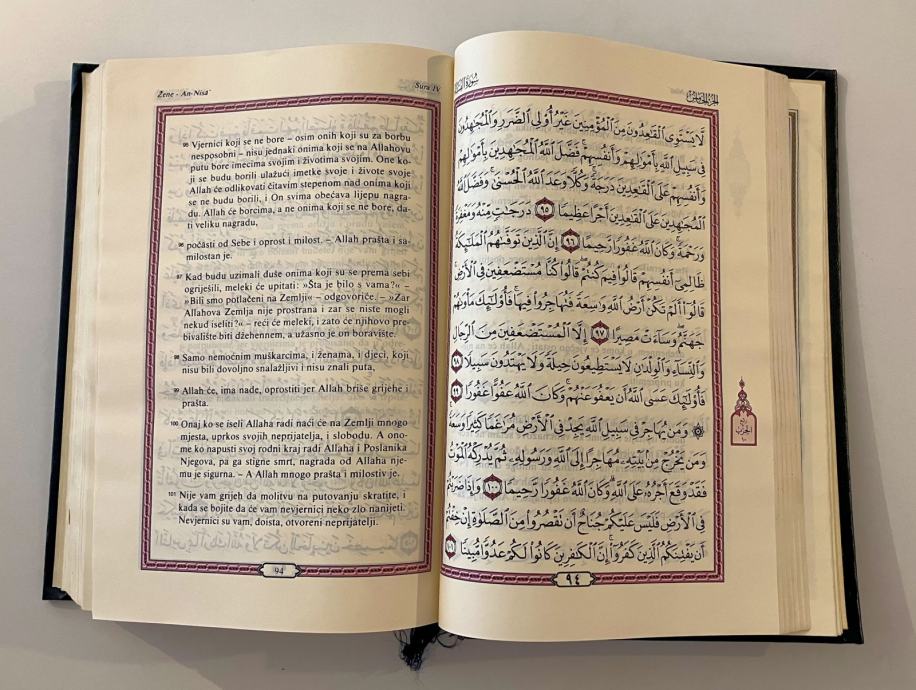 Žene - An-Nisā'
Sura IV
95 Vjernici koji se ne bore – osim onih koji su za borbu
nesposobni – nisu jednaki onima koji se na Allahovu
putu bore imecima svojim i životima svojim. One ko-
ji se budu borili ulažući imetke svoje i živote svoje
Allah će odlikovati čitavim stepenom nad onima koji
se ne budu borili, i On svima obećava lijepu nagra-
du. Allah će borcima, a ne onima koji se ne bore, da-
ti veliku nagradu,
96 počasti od Sebe i oprost i milost. – Allah prašta i sa-
milostan je.
97 Kad budu uzimali duše onima koji su se prema sebi
ogriješili, meleki će upitati: »Šta je bilo s vama?« –
»Bili smo potlačeni na Zemlji« – odgovoriće. – »Zar
Allahova Zemlja nije prostrana i zar se niste mogli
nekud iseliti?« – reći će meleki, i zato će njihovo pre-
bivalište biti džehennem, a užasno je on boravište.
98 Samo nemoćnim muškarcima, i ženama, i djeci, koji
nisu bili dovoljno snalažljivi i nisu znali puta,
99 Allah će, ima nade, oprostiti jer Allah briše grijehe i
prašta.
100 Onaj ko se iseli Allaha radi naći će na Zemlji mnogo
mjesta, uprkos svojih neprijatelja, i slobodu. A ono-
me ko napusti svoj rodni kraj radi Allaha i Poslanika
Njegova, pa ga stigne smrt, nagrada od Allaha nje-
mu je sigurna. – A Allah mnogo prašta i milostiv je.
101 Nije vam grijeh da molitvu na putovanju skratite, i
kada se bojite da će vam nevjernici neko zlo nanijeti.
Nevjernici su vam, doista, otvoreni neprijatelji.
94
الجزء الخامس
سورة النساء
لَّا يَسْتَوِى ٱلْقَٰعِدُونَ مِنَ ٱلْمُؤْمِنِينَ غَيْرُ أُو۟لِى ٱلضَّرَرِ وَٱلْمُجَٰهِدُونَ
فِى سَبِيلِ ٱللَّهِ بِأَمْوَٰلِهِمْ وَأَنفُسِهِمْ ۚ فَضَّلَ ٱللَّهُ ٱلْمُجَٰهِدِينَ بِأَمْوَٰلِهِمْ
وَأَنفُسِهِمْ عَلَى ٱلْقَٰعِدِينَ دَرَجَةً ۚ وَكُلًّا وَعَدَ ٱللَّهُ ٱلْحُسْنَىٰ ۚ وَفَضَّلَ ٱللَّهُ
ٱلْمُجَٰهِدِينَ عَلَى ٱلْقَٰعِدِينَ أَجْرًا عَظِيمًا ٩٥ دَرَجَٰتٍ مِّنْهُ وَمَغْفِرَةً
وَرَحْمَةً ۚ وَكَانَ ٱللَّهُ غَفُورًا رَّحِيمًا ٩٦ إِنَّ ٱلَّذِينَ تَوَفَّىٰهُمُ ٱلْمَلَٰٓئِكَةُ
ظَالِمِىٓ أَنفُسِهِمْ قَالُوا۟ فِيمَ كُنتُمْ ۖ قَالُوا۟ كُنَّا مُسْتَضْعَفِينَ فِى ٱلْأَرْضِ ۚ
قَالُوٓا۟ أَلَمْ تَكُنْ أَرْضُ ٱللَّهِ وَٰسِعَةً فَتُهَاجِرُوا۟ فِيهَا ۚ فَأُو۟لَٰٓئِكَ مَأْوَىٰهُمْ
جَهَنَّمُ ۖ وَسَآءَتْ مَصِيرًا ٩٧ إِلَّا ٱلْمُسْتَضْعَفِينَ مِنَ ٱلرِّجَالِ
وَٱلنِّسَآءِ وَٱلْوِلْدَٰنِ لَا يَسْتَطِيعُونَ حِيلَةً وَلَا يَهْتَدُونَ سَبِيلًا ٩٨
فَأُو۟لَٰٓئِكَ عَسَى ٱللَّهُ أَن يَعْفُوَ عَنْهُمْ ۚ وَكَانَ ٱللَّهُ عَفُوًّا غَفُورًا ٩٩
۞ وَمَن يُهَاجِرْ فِى سَبِيلِ ٱللَّهِ يَجِدْ فِى ٱلْأَرْضِ مُرَٰغَمًا كَثِيرًا وَسَعَةً ۚ
وَمَن يَخْرُجْ مِنۢ بَيْتِهِۦ مُهَاجِرًا إِلَى ٱللَّهِ وَرَسُولِهِۦ ثُمَّ يُدْرِكْهُ ٱلْمَوْتُ
فَقَدْ وَقَعَ أَجْرُهُۥ عَلَى ٱللَّهِ ۗ وَكَانَ ٱللَّهُ غَفُورًا رَّحِيمًا ١٠٠ وَإِذَا ضَرَبْتُمْ
فِى ٱلْأَرْضِ فَلَيْسَ عَلَيْكُمْ جُنَاحٌ أَن تَقْصُرُوا۟ مِنَ ٱلصَّلَوٰةِ إِنْ خِفْتُمْ
أَن يَفْتِنَكُمُ ٱلَّذِينَ كَفَرُوٓا۟ ۚ إِنَّ ٱلْكَٰفِرِينَ كَانُوا۟ لَكُمْ عَدُوًّا مُّبِينًا ١٠١
٩٤